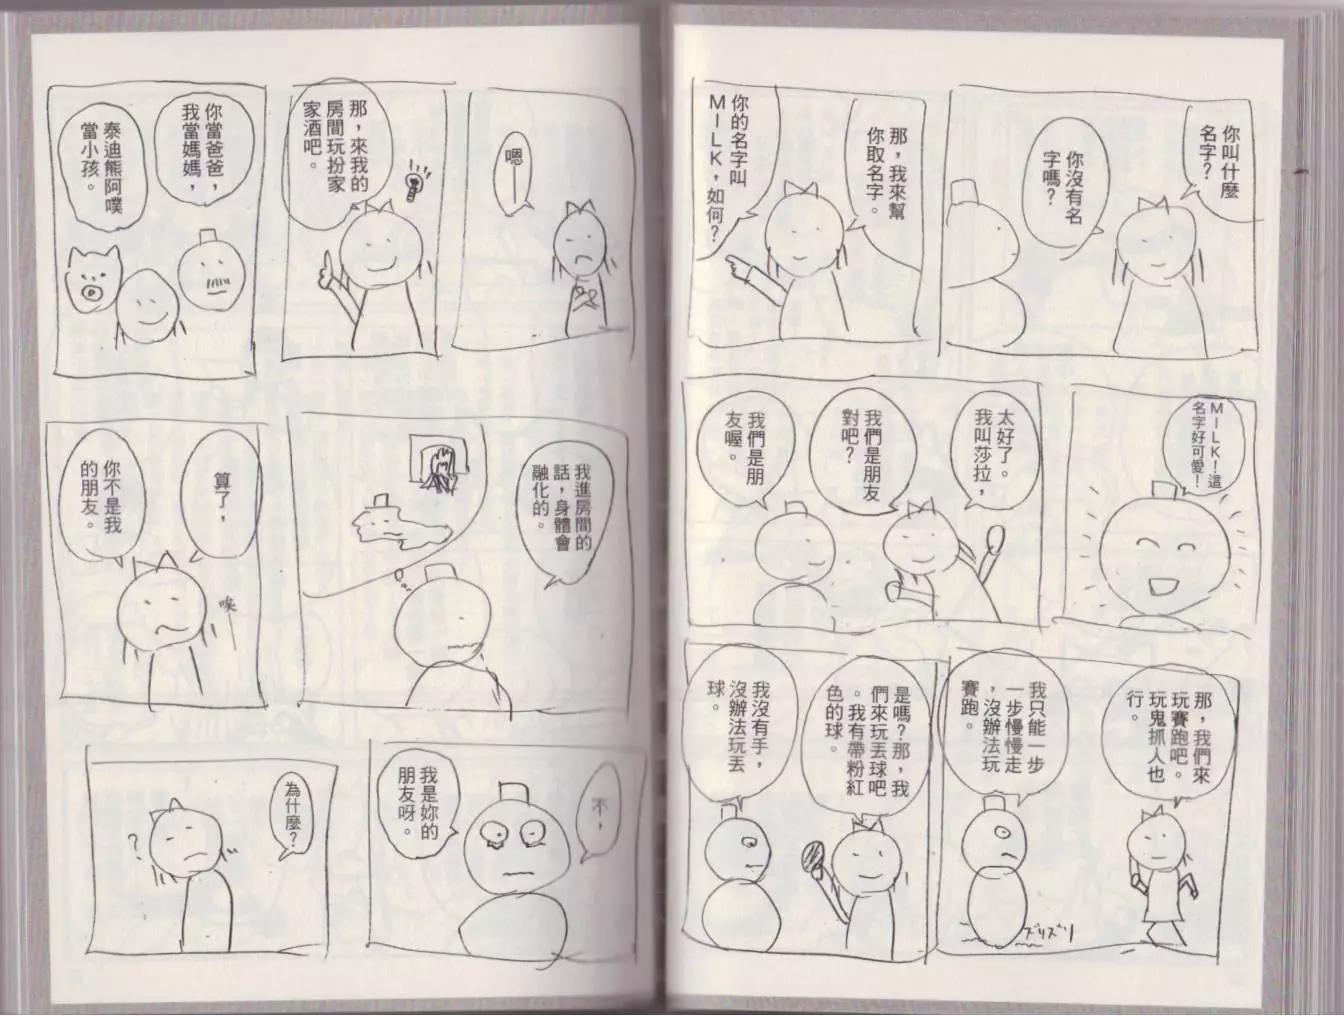 你叫什麼
名字？
你沒有名
字嗎？
那，我來幫
你取名字。
你的名字叫
MILK，如何？
MILK！這
名字好可愛！
太好了。
我叫莎拉，
我們是朋友
對吧？
我們是朋
友喔。
那，我們來
玩賽跑吧。
玩鬼抓人也
行。
我只能一步
一步慢慢走
，沒辦法玩
賽跑。
ズリズリ
是嗎？那，我
們來玩丟球吧
。我有帶粉紅
色的球。
我沒有手，
沒辦法玩丟
球。
嗯—
那，來我的
房間玩扮家
家酒吧。
你當爸爸，
我當媽媽，
泰迪熊阿噗
當小孩。
我進房間的
話，身體會
融化的。
算了，
你不是我
的朋友。
唉
不，
我是妳的
朋友呀。
為什麼？
？